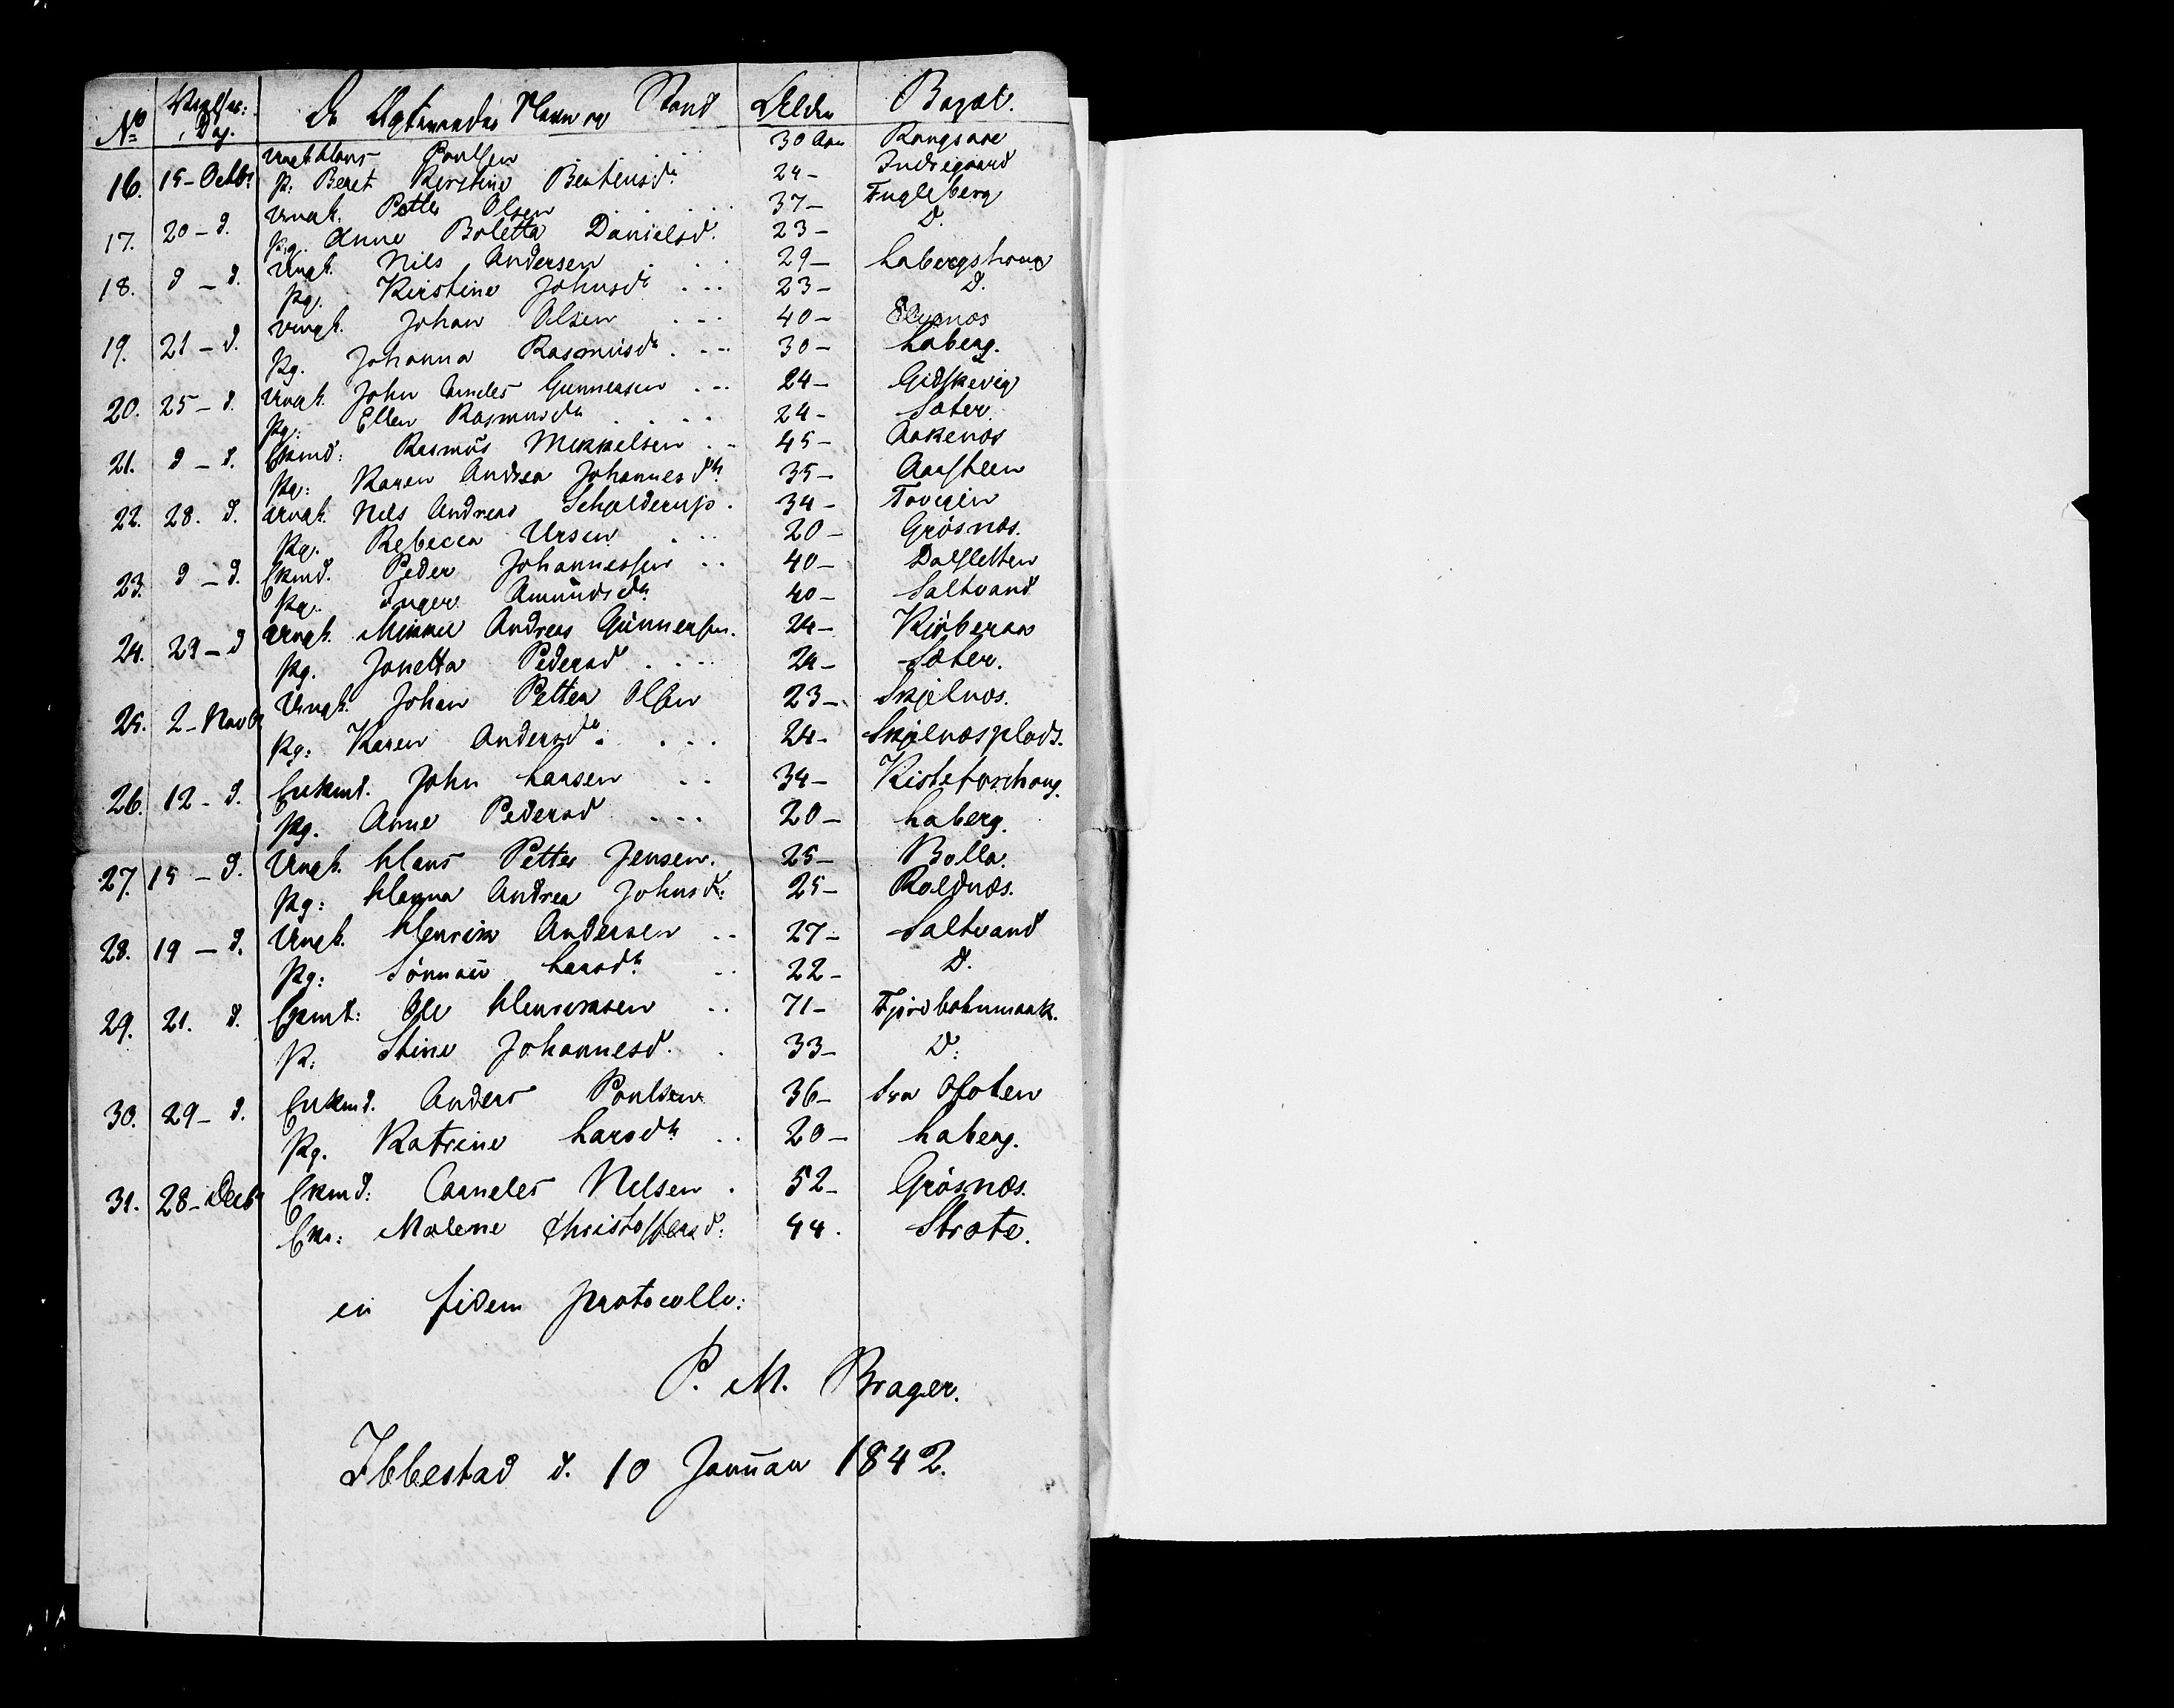 No Vielses: Dag. De Ægteviedes Navn og Stand Alder Bopæl.
16. 15 - Octbr Ungk Hans Poulsen 30 Aar Rangsaae
P: Beret Kirstine Bentensdr 24 - Indregaard
17. 20 - d. Ungk. Petter Olsen 37 - Fugleberg
Pig. Anne Boletta Danielsd. 23 - D.
18. d - d. Ungk. Nils Andersen 29 - Labergstrand
Pg. Kirstine Johnsdr 23 - D.
19. 21 - d. Ungk. Johan Olsen 40 - Elvenæs
Pg. Johanna Rasmusdr. 30 - Laberg.
20. 25 - d. Ungk. John Andes Gunnersen 24 - Gidskevig
Pg: Ellen Rasmusdr 24 - Sæter.
21. d - d. Ekmd: Rasmus Mikkelsen 45 - Aakenæs
Pg: Karen Andrea Johannesdtr 35 - Aarsteen
22. 28. d. Ungk. Nils Andreas Schjelderup. 34 - Tovigen
Pg. Rebecca Ursin 20 - Grøsnæs.
23. d - d. Ekmd. Peder Johannessen 40 - Dalsletten
Pg. Inger Amundsdtr 40 - Saltvand
24. 29 - d Ungk. Mikkel Andreas Gunnersen. 24 - Kirberaa
Pg. Jonetta Pedersd 24 - Sæter.
25. 2 - Novbr Ungk. Johan Petter Olsen 23 - Skjelnæs.
Pg: Karen Andersdr. 24 - Skjelnæsplads.
26. 12 - d. Enkmd. John Larsen 34 - Kistefoshoug.
Pg. Anne Pedersd 20 - Laberg.
27. 15 - d. Ungk. Hans Petter Jensen. 25 - Bolla.
Pg: Hanna Andrea Johnsd: 25 - Roldnæs.
28. 19 - d. Ungk. Henrik Andersen 27 - Saltvand
Pg: Sønnau Larsdtr 22 - D.
29. 21. d. Ekmd: Ole Henriksen 71 - Fjordbotnmark.
P. Stine Johannesd. 33 - D:
30. 29 - d. Enkmd. Anders Poulsen 36 - Fra Ofoten
Pg. Katrine Larsdtr 20 - Laberg.
31. 28 - Decbr Ekmd: Corneles Nelsen 52 - Grøsnæs.
Eke: Malene Christoffersd: 44. Strate.
in fidem protocolli:
P. M. Brager.
Ibbestad d. 10 Januar 1842.